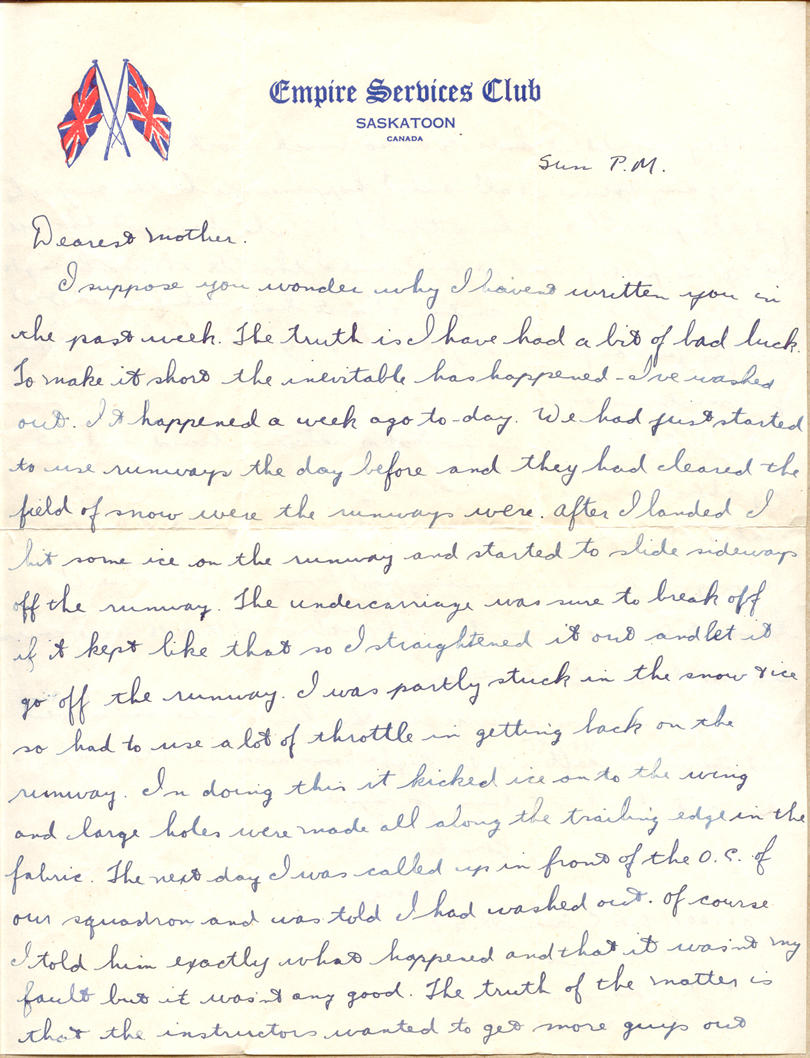 Empire Services Club
SASKATOON
CANADA
Sun P.M.
Dearest Mother.
I suppose you wonder why I havent written you in
the past week. The truth is I have had a bit of bad luck.
To make it short the inevitable has happened - I've washed
out. It happened a week ago to-day. We had just started
to use runways the day before and they had cleared the
field of snow were the runways were. After I landed I
hit some ice on the runway and started to slide sideways
off the runway. The undercarriage was sure to break off
if it kept like that so I straightened it out and let it
go off the runway. I was partly stuck in the snow & ice
so had to use a lot of throttle in getting back on the
runway. In doing this it kicked ice on to the wing
and large holes were made all along the trailing edge in the
fabric. The next day I was called up in front of the O.C. of
our squadron and was told I had washed out. Of course
I told him exactly what happened and that it wasn't my
fault but it wasn't any good. The truth of the matter is
that the instructors wanted to get more guys out